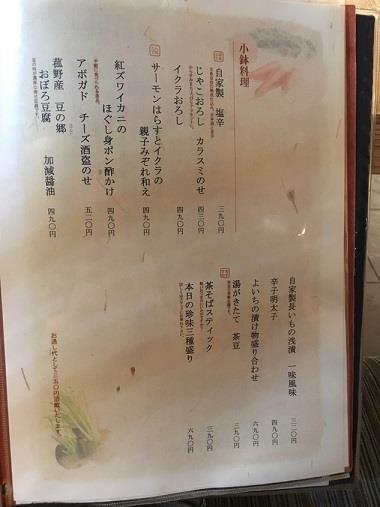 小鉢料理
自家製 塩辛
三九〇円
じゃこおろし カラスミのせ
四三〇円
イクラおろし
四九〇円
サーモンはらすとイクラの
親子みぞれ和え
四九〇円
紅ズワイカニの
ほぐし身ポン酢かけ
四九〇円
アボガド チーズ酒盗のせ
五二〇円
菰野産 豆の郷
おぼろ豆腐 加減醤油
四九〇円
自家製長いもの浅漬 一味風味
三二〇円
辛子明太子
六九〇円
よいちの漬け物盛り合わせ
六九〇円
湯がきたて 茶豆
三九〇円
茶そばスティック
三九〇円
本日の珍味三種盛り
六九〇円
お通し代として三五〇円頂戴いたします。